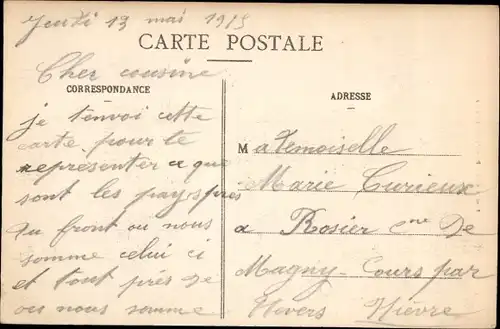 Jeudi 13 mai 1915
CARTE POSTALE
Cher cousine
CORRESPONDANCE
je tenvoi cette
carte pour te
representer ce que
sont les pays près
du front ou nous
somme celui ci
et tout près de
ou nous somme
ADRESSE
Mademoiselle
Marie Curieux
a Rosier cne de
Magny-Cours par
Nevers Nièvre